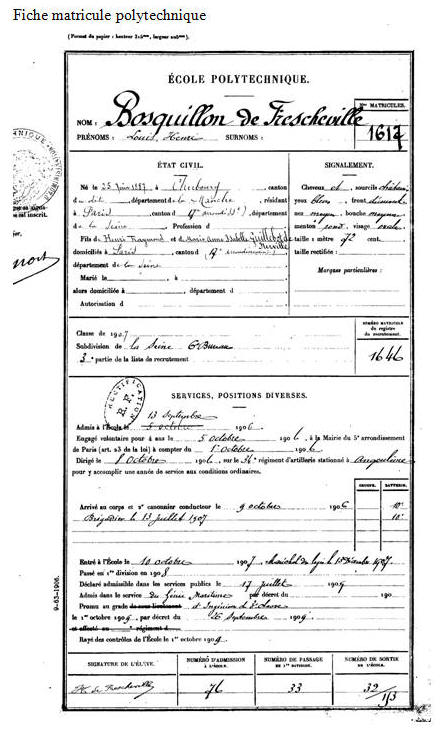 Fiche matricule polytechnique
(Format du papier : hauteur 315mm, largeur 205mm.)
ÉCOLE POLYTECHNIQUE.
Nos MATRICULES.
NOM : Bosquillon de Frescheville
1617
PRÉNOMS : Louis Henri SURNOMS :
ÉTAT CIVIL.
Né le 25 Juin 1887 à Cherbourg, canton
du dit, département de la Manche, résidant
à Paris, canton d (17e arrondisst), département
de la Seine, Profession d
Fils de Henri Raymond et de Marie Anne Isabelle Guillebot de Nerville
domiciliés à Paris, canton d (17e arrondissement)
département de la Seine
Marié le , à
alors domiciliée à , département d
Autorisation d
SIGNALEMENT.
Cheveux et sourcils châtains
yeux bleus, front
nez moyen, bouche moyenne
menton rond, visage ovale
taille : 1 mètre 72 cent.
taille rectifiée :
Marques particulières :
Classe de 1907
Subdivision de la Seine 6e Bureau
3e partie de la liste de recrutement
NUMÉRO MATRICULE
du registre
de recrutement.
1646
RECTIFICATION
R. F.
SERVICES, POSITIONS DIVERSES.
13 Septembre
Admis à l'École le 5 octobre 1906
Engagé volontaire pour 4 ans le 5 octobre 1906, à la Mairie du 5e arrondissement
de Paris (art. 23 de la loi) à compter du 1er octobre 1906
Dirigé le 8 octobre 1906, sur le régiment d'artillerie stationné à Angoulême
pour y accomplir une année de service aux conditions ordinaires.
GROUPE. BATTERIE.
Arrivé au corps et 2e canonnier conducteur le 9 octobre 1906 10e
Brigadier le 13 juillet 1907 10e
Entré à l'École le 10 octobre 1907, Maréchal des logis le 1er Décembre 1907
Passé en 1re division en 1908
Déclaré admissible dans les services publics le 17 juillet 1909
Admis dans le service du Génie Maritime par décret du 190
Promu au grade de sous-lieutenant d'Ingénieur de 3e classe
le 1er octobre 1909, par décret du 26 Septembre 1909
et affecté au régiment d
Rayé des contrôles de l'École le 1er octobre 1909
9-63-1906.
SIGNATURE DE L'ÉLÈVE. NUMÉRO D'ADMISSION À L'ÉCOLE. NUMÉRO DE PASSAGE EN 1re DIVISION. NUMÉRO DE SORTIE DE L'ÉCOLE.
H. de Frescheville 76 33 32/153